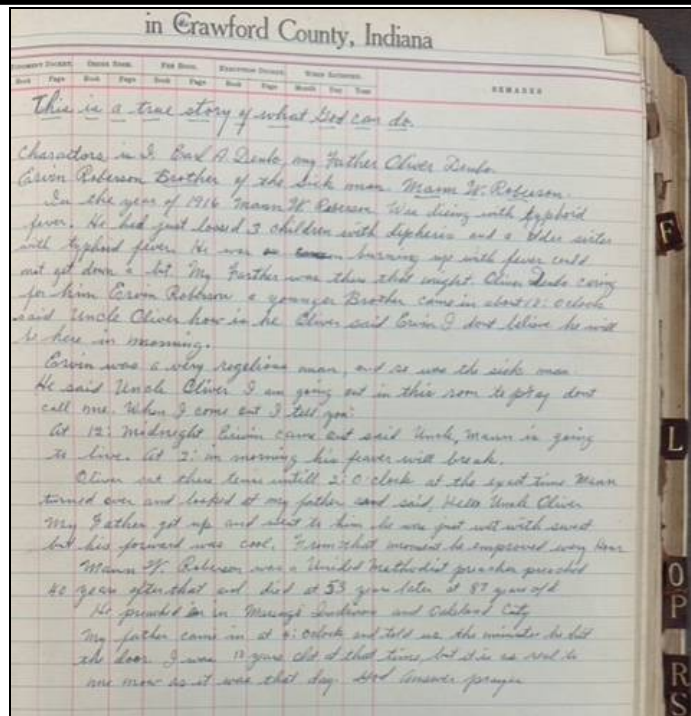 in Crawford County, Indiana
JUDGMENT DOCKET. ORDER BOOK. FEE BOOK. EXECUTION DOCKET. WHEN SATISFIED. REMARKS
Book Page Book Page Book Page Book Page Month Day Year
This is a true story of what God can do.
Charactors is I. Earl A Denbo, my Father Oliver Denbo
Ervin Roberson Brother of the Sick man. Mann W. Roberson.
In the year of 1916 Mann W. Roberson Was dieing with typhoid
fever. He had just loosed 3 children with dipheria and a older sister
with typhoid fever. He was burning up with fever could
not get down a bit. My Farther was there that nought. Oliver Denbo caring
for him Ervin Roberson a younger Brother came in about 12: Oclock
said Uncle Oliver how is he Oliver said Ervin I dont believe he will
be here in morning.
Ervin was a very regelious man, and so was the sick man.
He said Uncle Oliver I am going out in this room to pray dont
call me. When I come out I tell you:
At 12: Madneght Ervin came out said Uncle, Mann is going
to live. At 2: in morning his feaver will break.
Oliver sat there untill 2: O'clock at the exact time Mann
turned over and looked at my father and said, Hello Uncle Oliver
My Father got up and went to him he was just wet with swest
but his forward was cool. From that moment he emproved every Hour
Mann W. Roberson was a Unided Methodist preacher preached
40 years after that and died at 53 years later at 87 years old
He preached in Marengo and Oakland City
My father came in at 4: oclock and told us the minute he hit
the door. I was 12 years old at that time, but it is as real to
me now as it was that day. God Answer prayer
F
L
O
P
R
S